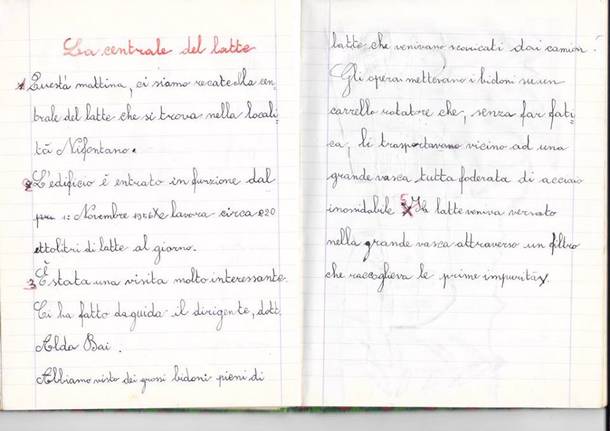 La centrale del latte
1 Questa mattina, ci siamo recate alla cen=
trale del latte che si trova nella locali=
tà Nifontano.
2 L'edificio è entrato in funzione dal
1° Novembre 1956 e lavora circa 220
ettolitri di latte al giorno.
3 È stata una visita molto interessante.
Ci ha fatto da guida il dirigente, dott.
Aldo Bai.
Abbiamo visto dei grossi bidoni pieni di
latte che venivano scaricati dai camion.
Gli operai mettevano i bidoni su un
carrello rotatore che, senza far fati=
ca, li trasportavano vicino ad una
grande vasca tutta foderata di acciaio
inossidabile 5 Il latte veniva versato
nella grande vasca attraverso un filtro
che raccoglieva le prime impurità.